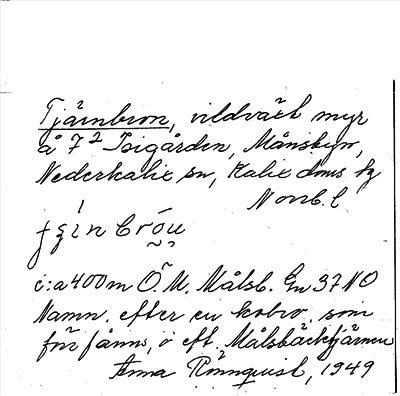 Tjärnbron, vildväxt myr
å 7² Isigården, Månsbyn,
Nederkalix sn, Kalix doms hg
Norrb. l
c:a 400 m Ö. M. Målsb. En 37 NO
Namn. efter en kobro, som
förr fanns, o eft. Målsbäckstjärnen
Anna Rönnqvist, 1949